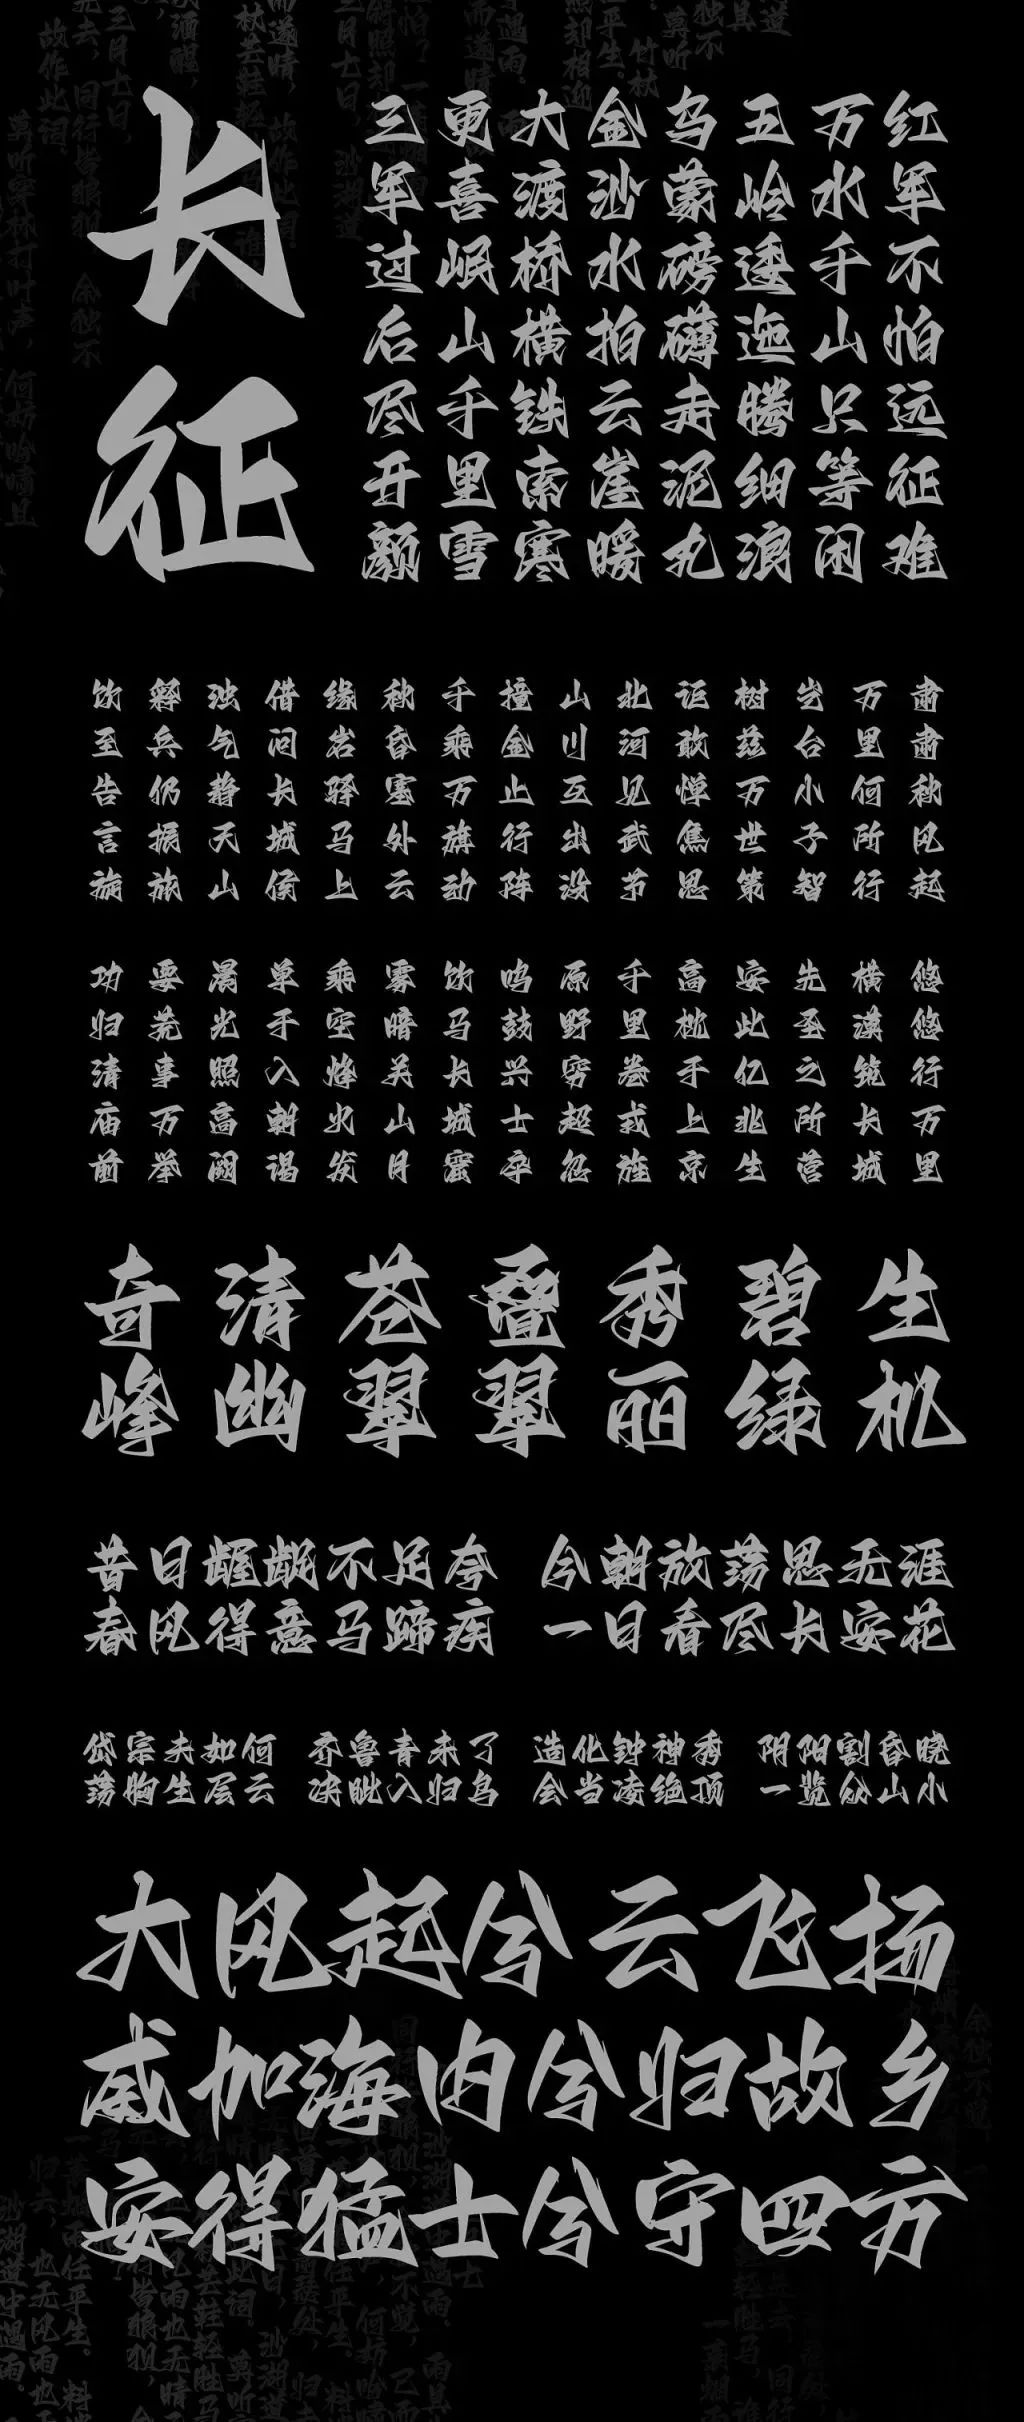 长征
红军不怕远征难
万水千山只等闲
五岭逶迤腾细浪
乌蒙磅礴走泥丸
金沙水拍云崖暖
大渡桥横铁索寒
更喜岷山千里雪
三军过后尽开颜
肃肃秋风起
万里何所行
岂台小子智
树兹万世策
讵敢惮焦思
北河见武节
山川互出没
撞金止行阵
千乘万旗动
秋昏塞外云
缘岩驿马上
借问长城侯
浊气静天山
释兵仍振旅
饮至告言旋
悠悠行万里
横漠筑长城
先圣之所营
安此亿兆生
高枕于上京
千里卷戎旌
原野穷超忽
鸣鼓兴士卒
饮马长城窟
雾暗关山月
乘空烽火发
单于入朝谒
浊光照高阙
要荒事万举
功归清庙前
生机
碧绿
秀丽
叠翠
苍翠
清幽
奇峰
昔日龌龊不足夸 今朝放荡思无涯
春风得意马蹄疾 一日看尽长安花
岱宗夫如何 齐鲁青未了 造化钟神秀 阴阳割昏晓
荡胸生层云 决眦入归鸟 会当凌绝顶 一览众山小
大风起兮云飞扬
威加海内兮归故乡
安得猛士兮守四方